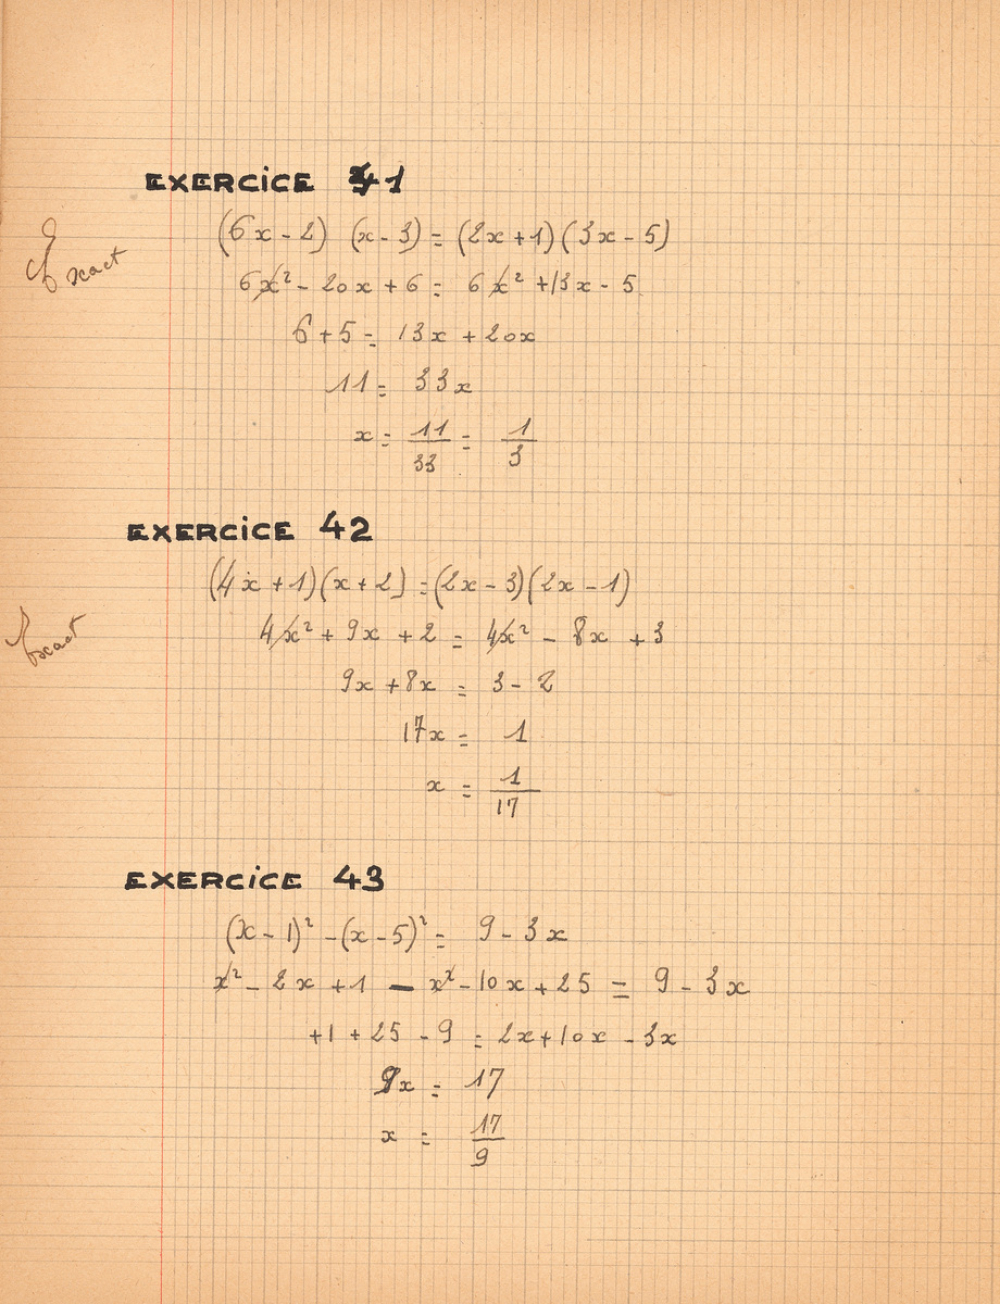 EXERCICE 41
Exact
(6x - 2) (x - 3) = (2x + 1) (3x - 5)
6x² - 20x + 6 = 6x² + 13x - 5
6 + 5 = 13x + 20x
11 = 33x
x = 11/33 = 1/3
EXERCICE 42
(4x + 1)(x + 2) = (2x - 3)(2x - 1)
Exact
4x² + 9x + 2 = 4x² - 8x + 3
9x + 8x = 3 - 2
17x = 1
x = 1/17
EXERCICE 43
(x - 1)² - (x - 5)² = 9 - 3x
x² - 2x + 1 - x² - 10x + 25 = 9 - 3x
+1 + 25 - 9 = 2x + 10x - 3x
9x = 17
x = 17/9